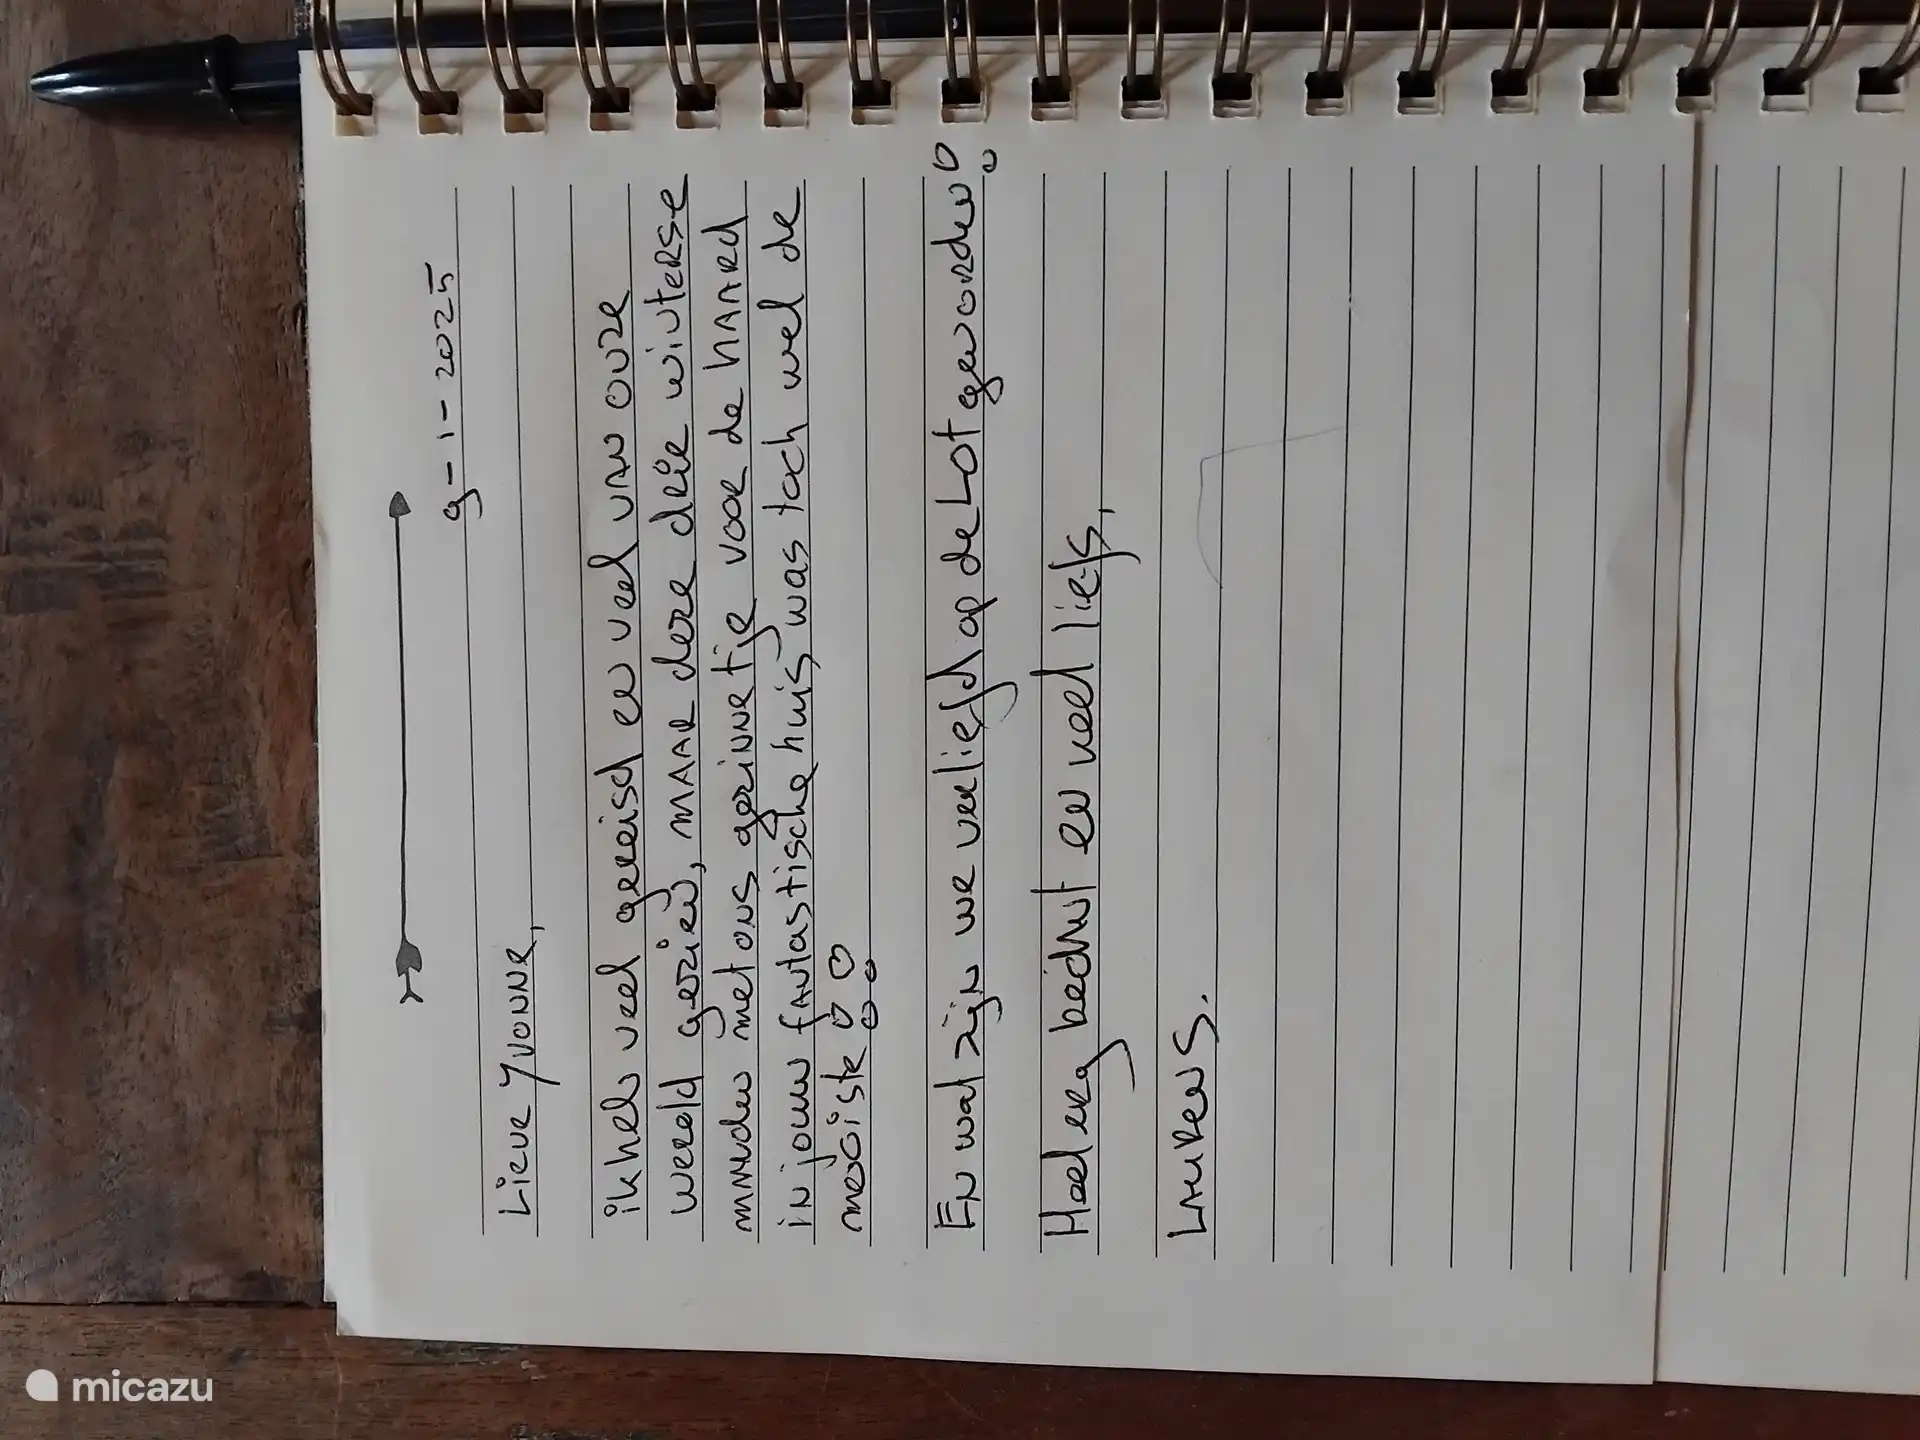 9-1-2025
Lieve Yvonne,
ik heb veel gereisd en veel van onze
wereld gezien, maar deze drie winterse
maanden met ons gezinnetje voor de haard
in jouw fantastische huis was toch wel de
mooiste!!
En wat zijn we verliefd op de Lot geworden!
Heel erg bedankt en veel liefs,
Laurens.
micazu